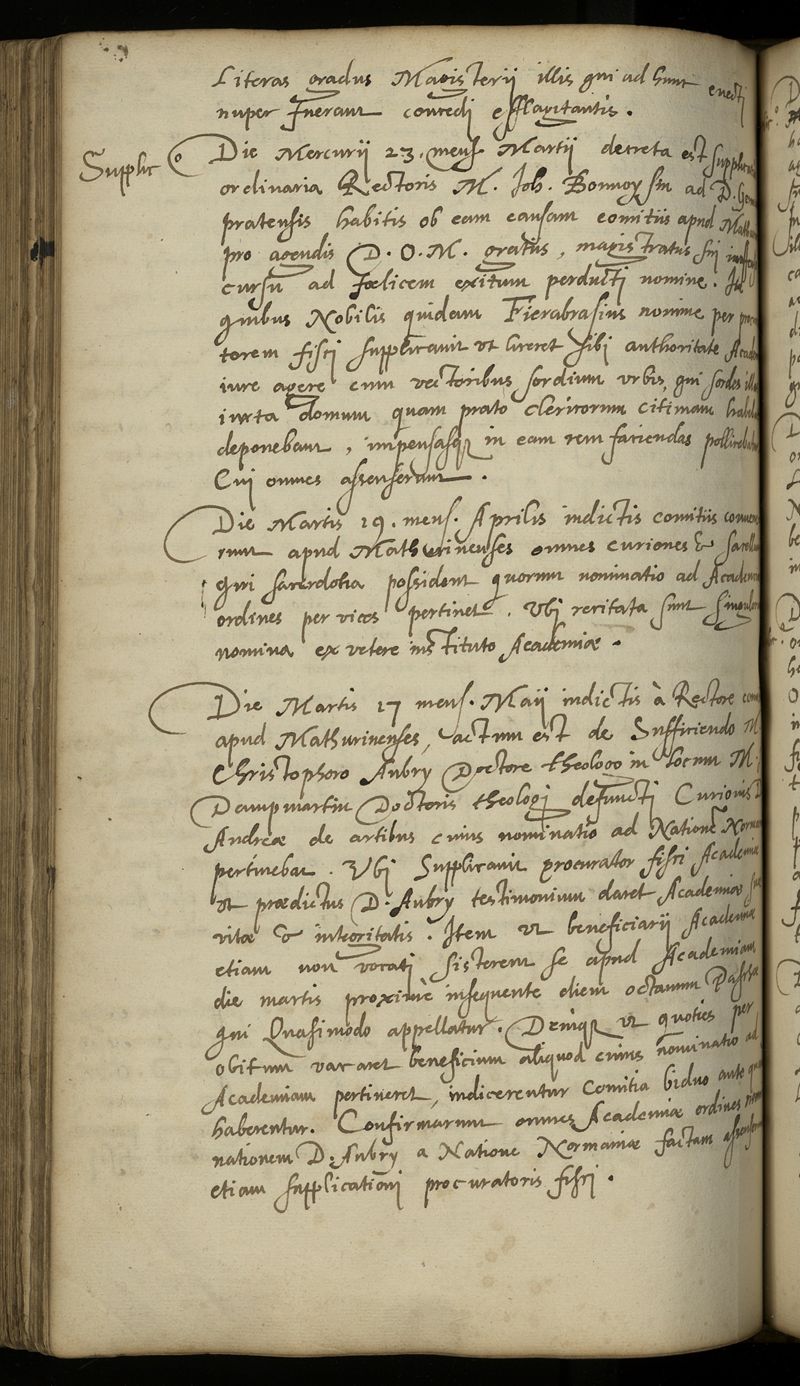 Literas gradus Magisterij illis qui ad hunc evecti
nuper fuerant concedj efflagitantis.
Supplic
Die Mercurij 23. mens. Martij decreta est supplicatio
ordinaria Rectoris M. Joh. ad D.
pratensis habitis ob eam causam comitiis apud
pro agendis D. O. M. gratiis, magistratus sui
cursu ad foelicem exitum perducti nomine. In
quibus Nobilis quidam Fierabrasius nomine per
torem fisci supplicavit ut liceret sibi authoritate
iure agere cum vectoribus sordium urbis, qui sordes
iuxta domum quam prato clericorum citimam
deponebant, impensasq in eam rem faciendas
Cui omnes assenserunt.
Die Martis 19. mens. Aprilis indictis comitiis
runt apud Mathurinenses omnes curiones &
qui sacerdotia possident quorum nominatio ad
ordines per vices pertinet. Ubj recitata sunt
nomina ex vetere instituto Academiæ.
Die Martis 17 mens. Maij indictis à Rectore
apud Mathurinenses, actum est de Sufficiendo M
Christophoro Aubry Doctore theologo in locum M.
Dampmartin Doctoris theologj defuncti Curionis
Andreæ de artibus cuius nominatio ad Natione
pertinebat. Ubj Supplicavit procurator fisci Academiæ
ut prædictus D. Aubry testimonium daret Academiæ
vitæ & integritatis. Item ut beneficiarij Academiæ
etiam non vocatj sisterent se apud Academiam
die martis proximè insequente diem octavum
qui Quasimodo appellatur. Deniq ut quoties per
obitum vacaret beneficium aliquod cuius nominatio ad
Academiam pertineret, indicerentur Comitia biduo ante
haberentur. Confirmarunt omnes Academiæ ordines
nationem D. Aubry a Natione Normaniæ factam
etiam supplicationj procuratoris fisci.